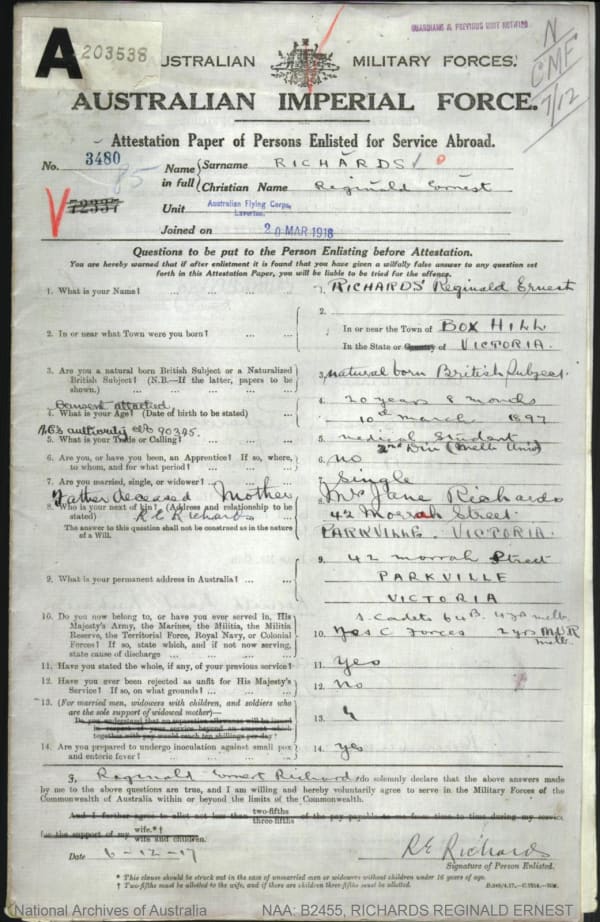 GUARDIANS & PREVIOUS UNIT NOTIFIED
A 203538
N
CMF
7/12
AUSTRALIAN MILITARY FORCES.
AUSTRALIAN IMPERIAL FORCE.
Attestation Paper of Persons Enlisted for Service Abroad.
No. 3480
85
72337
Name in full
Surname RICHARDS
Christian Name Reginald Ernest
Unit Australian Flying Corps, Laverton.
Joined on 20 MAR 1918
Questions to be put to the Person Enlisting before Attestation.
You are hereby warned that if after enlistment it is found that you have given a wilfully false answer to any question set
forth in this Attestation Paper, you will be liable to be tried for the offence.
1. What is your Name? ... ... ... 1. RICHARDS Reginald Ernest
2. In or near what Town were you born? ... ... 2. In or near the Town of BOX HILL
In the State or County of VICTORIA.
3. Are you a natural born British Subject or a Naturalized
British Subject? (N.B.—If the latter, papers to be
shown.) ... ... 3. natural born British Subject.
Consent attached
4. What is your Age? (Date of birth to be stated) ... 4. 20 years 8 months
10th march 1897
authority 90395.
5. What is your Trade or Calling? ... ... 5. medical Student
2nd Div (Melb Uni)
6. Are you, or have you been, an Apprentice? If so, where,
to whom, and for what period? ... ... 6. no
7. Are you married, single, or widower? ... ... 7. Single
Father deceased Mother
8. Who is your next of kin? (Address and relationship to be
stated) R E Richards
The answer to this question shall not be construed as in the nature
of a Will.
8. Mrs Jane Richards
42 Morrah Street.
PARKVILLE. VICTORIA.
9. What is your permanent address in Australia? ... ... 9. 42 morrah Street
PARKVILLE
VICTORIA
10. Do you now belong to, or have you ever served in, His
Majesty's Army, the Marines, the Militia, the Militia
Reserve, the Territorial Force, Royal Navy, or Colonial
Forces? If so, state which, and if not now serving,
state cause of discharge ... ...
S. Cadets 64B. 4 yrs melb.
10. Yes C Forces 2 yrs M U R
melb
11. Have you stated the whole, if any, of your previous service? 11. Yes
12. Have you ever been rejected as unfit for His Majesty's
Service? If so, on what grounds? ... ... 12. No
13. (For married men, widowers with children, and soldiers who
are the sole support of widowed mother)—
Do you understand that no separation allowance will be issued
in respect of your service beyond an amount which
together with pay would reach ten shillings per day?
13.
14. Are you prepared to undergo inoculation against small pox
and enteric fever? ... ... 14. yes
I, Reginald Ernest Richards do solemnly declare that the above answers made
by me to the above questions are true, and I am willing and hereby voluntarily agree to serve in the Military Forces of the
Commonwealth of Australia within or beyond the limits of the Commonwealth.
And I further agree to allot not less than two-fifths three-fifths of the pay payable to me from time to time during my service
for the support of my wife.*†
wife and children.
Date 6-12-17 R E Richards
Signature of Person Enlisted.
* This clause should be struck out in the case of unmarried men or widowers without children under 16 years of age.
† Two-fifths must be allotted to the wife, and if there are children three-fifths must be allotted.
National Archives of Australia NAA: B2455, RICHARDS REGINALD ERNEST